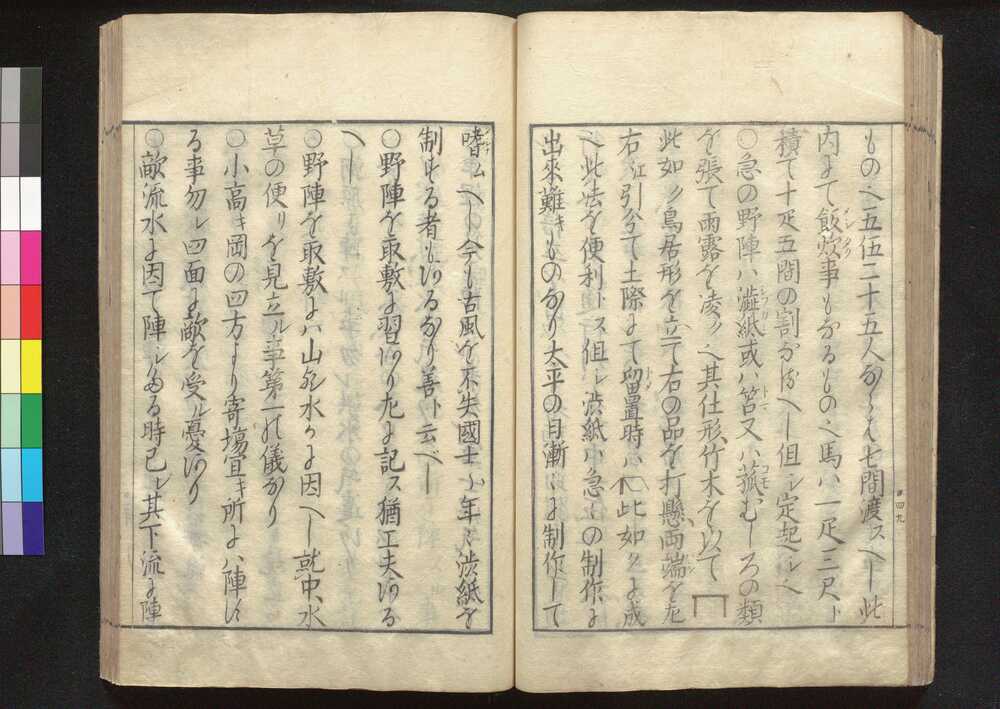 ものゝ五伍二十五人ならば七間渡スべし此
内にて飯炊事もなるものゝ馬ハ一疋三尺ト
積て十疋五間の割かけべし但シ定起べしゝ
〇急の野陣ハ澁紙或ハ笘又ハ菰むしろの類
を張て雨露を凌クへ其仕形竹木を以て
此如ク鳥居形を立て右の品を打懸両端を左
右江引分て土際にて留置時ハ此如クに成
へ此法を便利トス但シ渋紙ハ急ニの制作に
出來難キものなり太平の日漸ニに制作して
嗜ムべし今も古風を不失國士ハ年々渋紙を
制する者もあるなり善ト云べし
〇野陣を取敷に習あり左に記ス猶工夫ある
べし
〇野陣を取敷にハ山と水とに因べし就中水
草の便リを見立ル事第一の儀なり
〇小高キ岡の四方より寄場宜キ所にハ陣す
る事勿レ四面に敵を受ル憂あり
〇敵流水に因て陣シたる時己レ其下流に陣